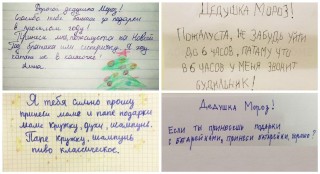 Дорогой дедушка Мороз!
Спасибо тебе за подарки
в прошлом году!
Принеси мне пожалуйста на Новый
Год
Анна.
ДЕДУШКА МОРОЗ!
ПОЖАЛУСТА, НЕ ЗАБУДЬ УЙТИ
ДО 6 ЧАСОВ, ПАТАМУ ЧТО
В 6 ЧАСОВ У МЕНЯ ЗВОНИТ
БУДИЛЬНИК!
Я тебя сильно прошу
принеси маме и папе подарки
маме кружку, духи, шампунь.
Папе кружку, шампунь
пиво классическое.
Дедушка Мороз!
Если ты принесёшь подарки
с батарейками, принеси батарейки, хорошо?